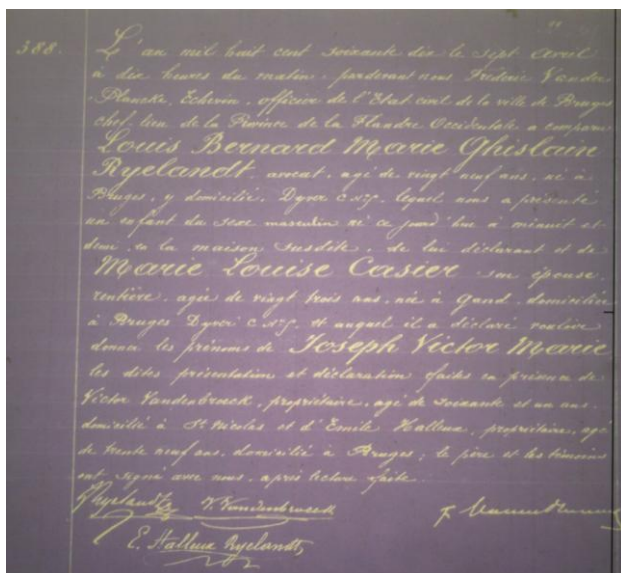 388.
L'an mil huit cent soixante dix le sept avril
à dix heures du matin, pardevant nous Frédéric Vander-
Plancke, Echevin, officier de l'Etat civil de la ville de Bruges
chef-lieu de la Province de la Flandre Occidentale a comparu
Louis Bernard Marie Ghislain
Ryelandt avocat, agé de vingt neuf ans, né à
Bruges, y domicilié, Dyver lequel nous a présenté
un enfant du sexe masculin né ce jourd'hui à minuit et
demi, en la maison susdite, de lui déclarant et de
Marie Louise Casier son épouse
rentière, agée de vingt trois ans, née à Gand, domiciliée
à Bruges Dyver et auquel il a déclaré vouloir
donner les prénoms de Joseph Victor Marie
les dites présentation et déclaration faites en présence de
Victor Vandenbroeck, propriétaire, agé de soixante et un ans
domicilié à St Nicolas et d'Emile Halleux, propriétaire, agé
de trente neuf ans, domicilié à Bruges; le père et les témoins
ont signé avec nous, après lecture faite.
L Ryelandt V. Vandenbroeck
E. Halleux Ryelandt,